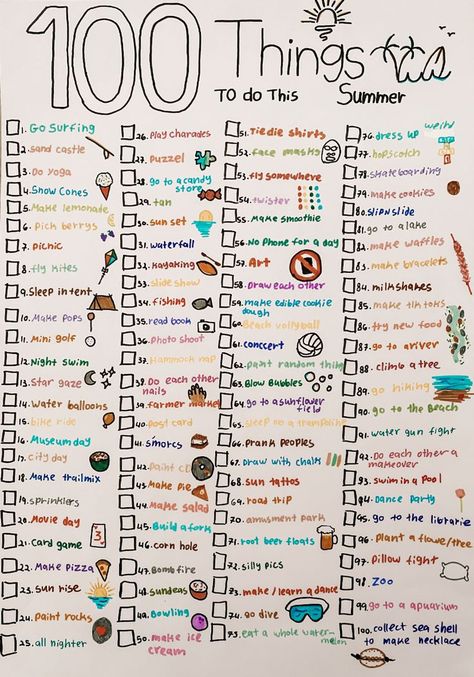 100 Things
TO do This Summer
1. Go Surfing
2. sand castle
3. Do yoga
4. Snow Cones
5. Make lemonade
6. Pick berrys
7. Picnic
8. fly kites
9. Sleep in tent
10. Make Pops
11. Mini golf
12. Night swim
13. Star gaze
14. Water balloons
15. bike ride
16. Museum day
17. City day
18. Make trailmix
19. sprinklers
20. Movie day
21. card game
3
22. Make Pizza
23. sun rise
24. Paint rocks
25. all nighter
26. Play charades
27. Puzzel
28. go to a candy
store
29. tan
30. sun set
31. waterfall
32. Kayaking
33. slide show
34. fishing
35. read book
36. Photo shoot
37. Hammock nap
38. Do each other
nails
39. farmer market
40. Post card
41. smorcs
42. Paint CD
43. Make Pie
44. Make salad
45. Build a fork
46. corn hole
47. Bomb fire
48. sundeas
49. Bowling
50. make ice
cream
51. Tie die shirts
52. face masky
53. fly somewhere
54. twister
55. Make smoothie
56. No Phone for a day
57. Art
58. Draw each other
59. make edible cookie
dough
60. Beach vollyball
61. conccert
62. Paint random thing
63. Blow Bubbles
64. go to a sunflower
field
65. sleep on a trampoline
66. Prank peoples
67. Draw with chalk
68. sun tattos
69. road trip
70. amusment park
71. root beer floats
72. silly pics
73. make / learn a dance
74. go dive
75. eat a whole water-
melon
76. dress up weird
77. hopscotch
78. skate boarding
79. make cookies
80. slip n slide
81. go to a lake
82. make waffles
83. make bracelets
84. milkshakes
85. make tik toks
86. try new food
87. go to a river
88. climb a tree
89. go hiking
90. go to the Beach
91. water gun fight
92. Do each other a
makeover
93. swim in a Pool
94. Dance party
95. go to the librarie
96. Plant a flowe/tree
97. Pillow fight
98. Zoo
99. go to a apuarium
100. collect sea shell
to make necklace